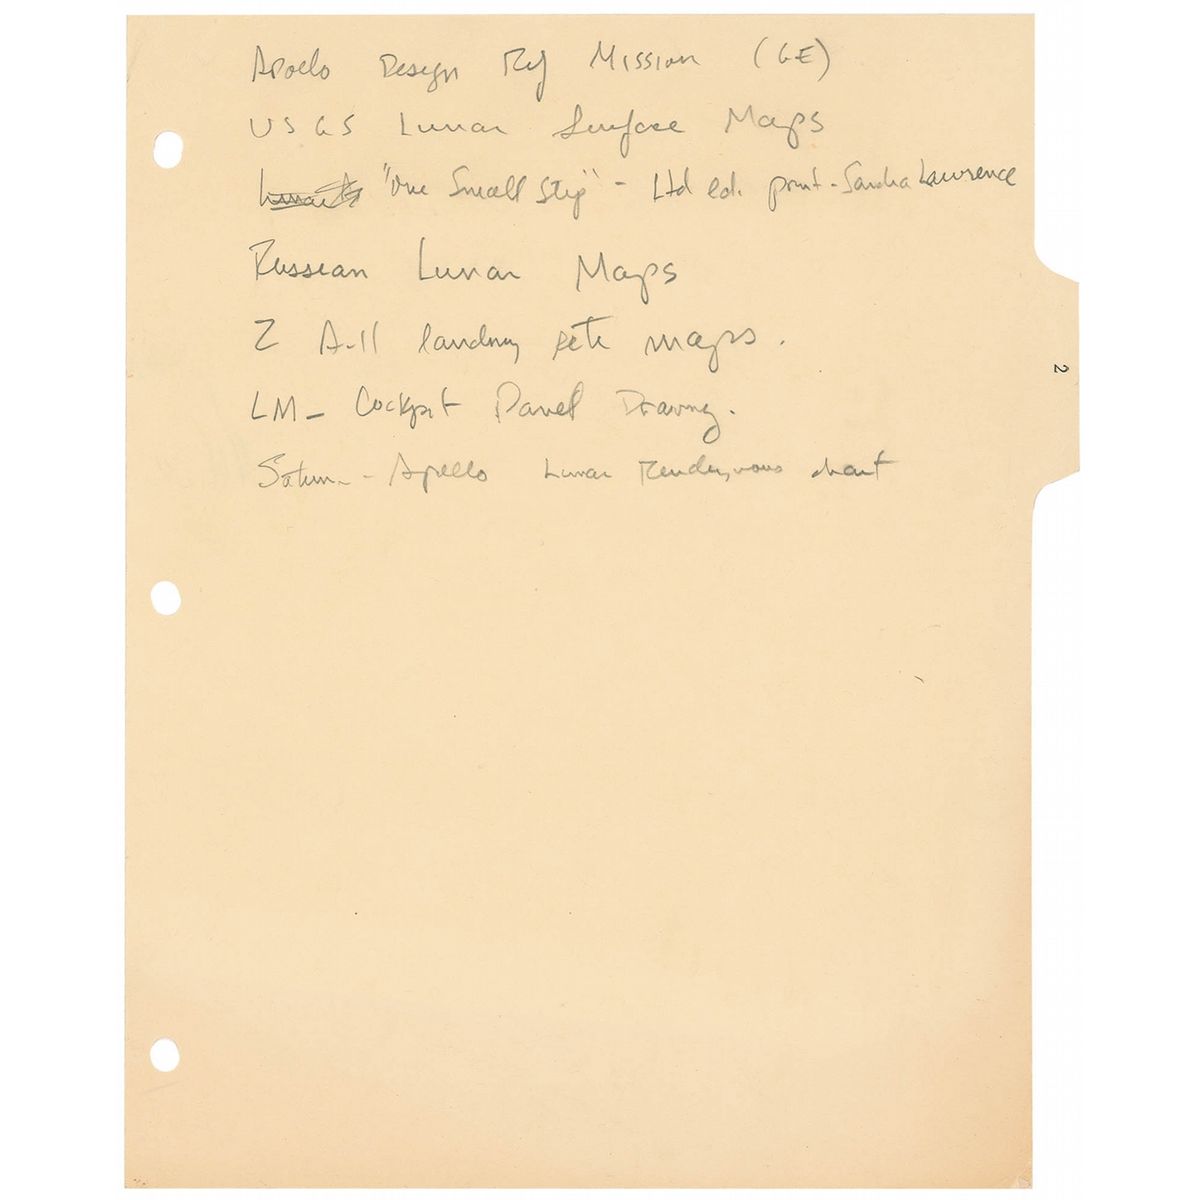 Apollo Design Ref Mission (GE)
USGS Lunar Surface Maps
"One Small Step" - Ltd ed. print - Sandra Lawrence
Russian Lunar Maps
2 A-11 landing site maps.
LM - Cockpit Panel Drawing.
Saturn - Apollo Lunar Rendezvous chart
2